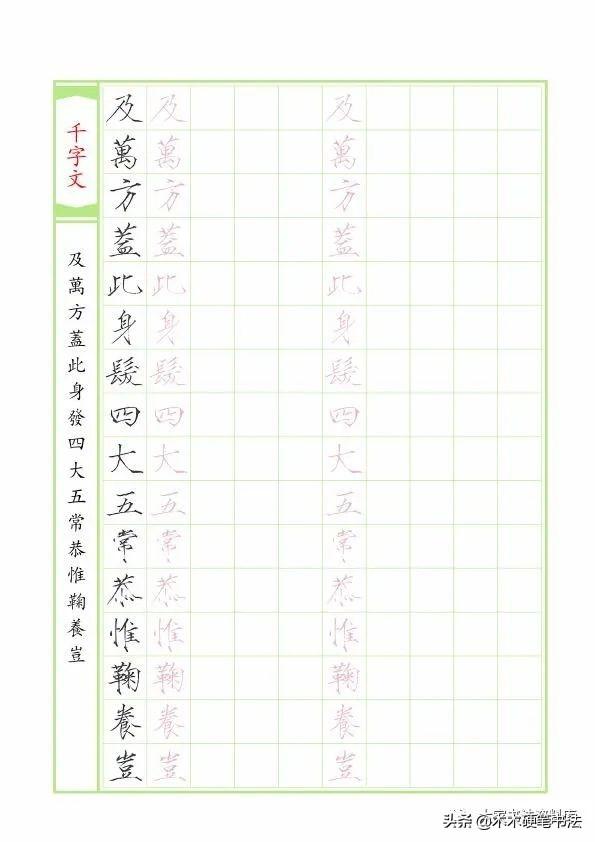 千字文
及萬方蓋此身發四大五常恭惟鞠養豈
及萬方蓋此身髮四大五常恭惟鞠養豈
及萬方蓋此身髮四大五常恭惟鞠養豈
及萬方蓋此身髮四大五常恭惟鞠養豈
头条 @木木硬笔书法